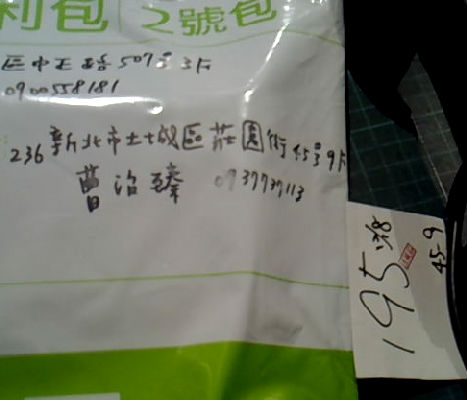 利包 2號包
區中正路507號3F
0900558181
236 新北市土城區莊園街45號9F
曹治臻 0937737113
195
1.28
45-9